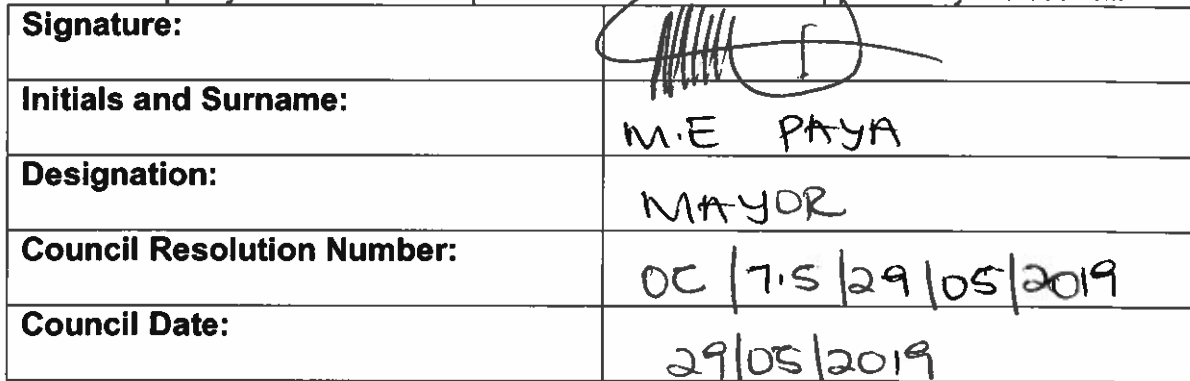 Signature:
Initials and Surname: M.E PAYA
Designation: MAYOR
Council Resolution Number: OC/7.5/29/05/2019
Council Date: 29/05/2019